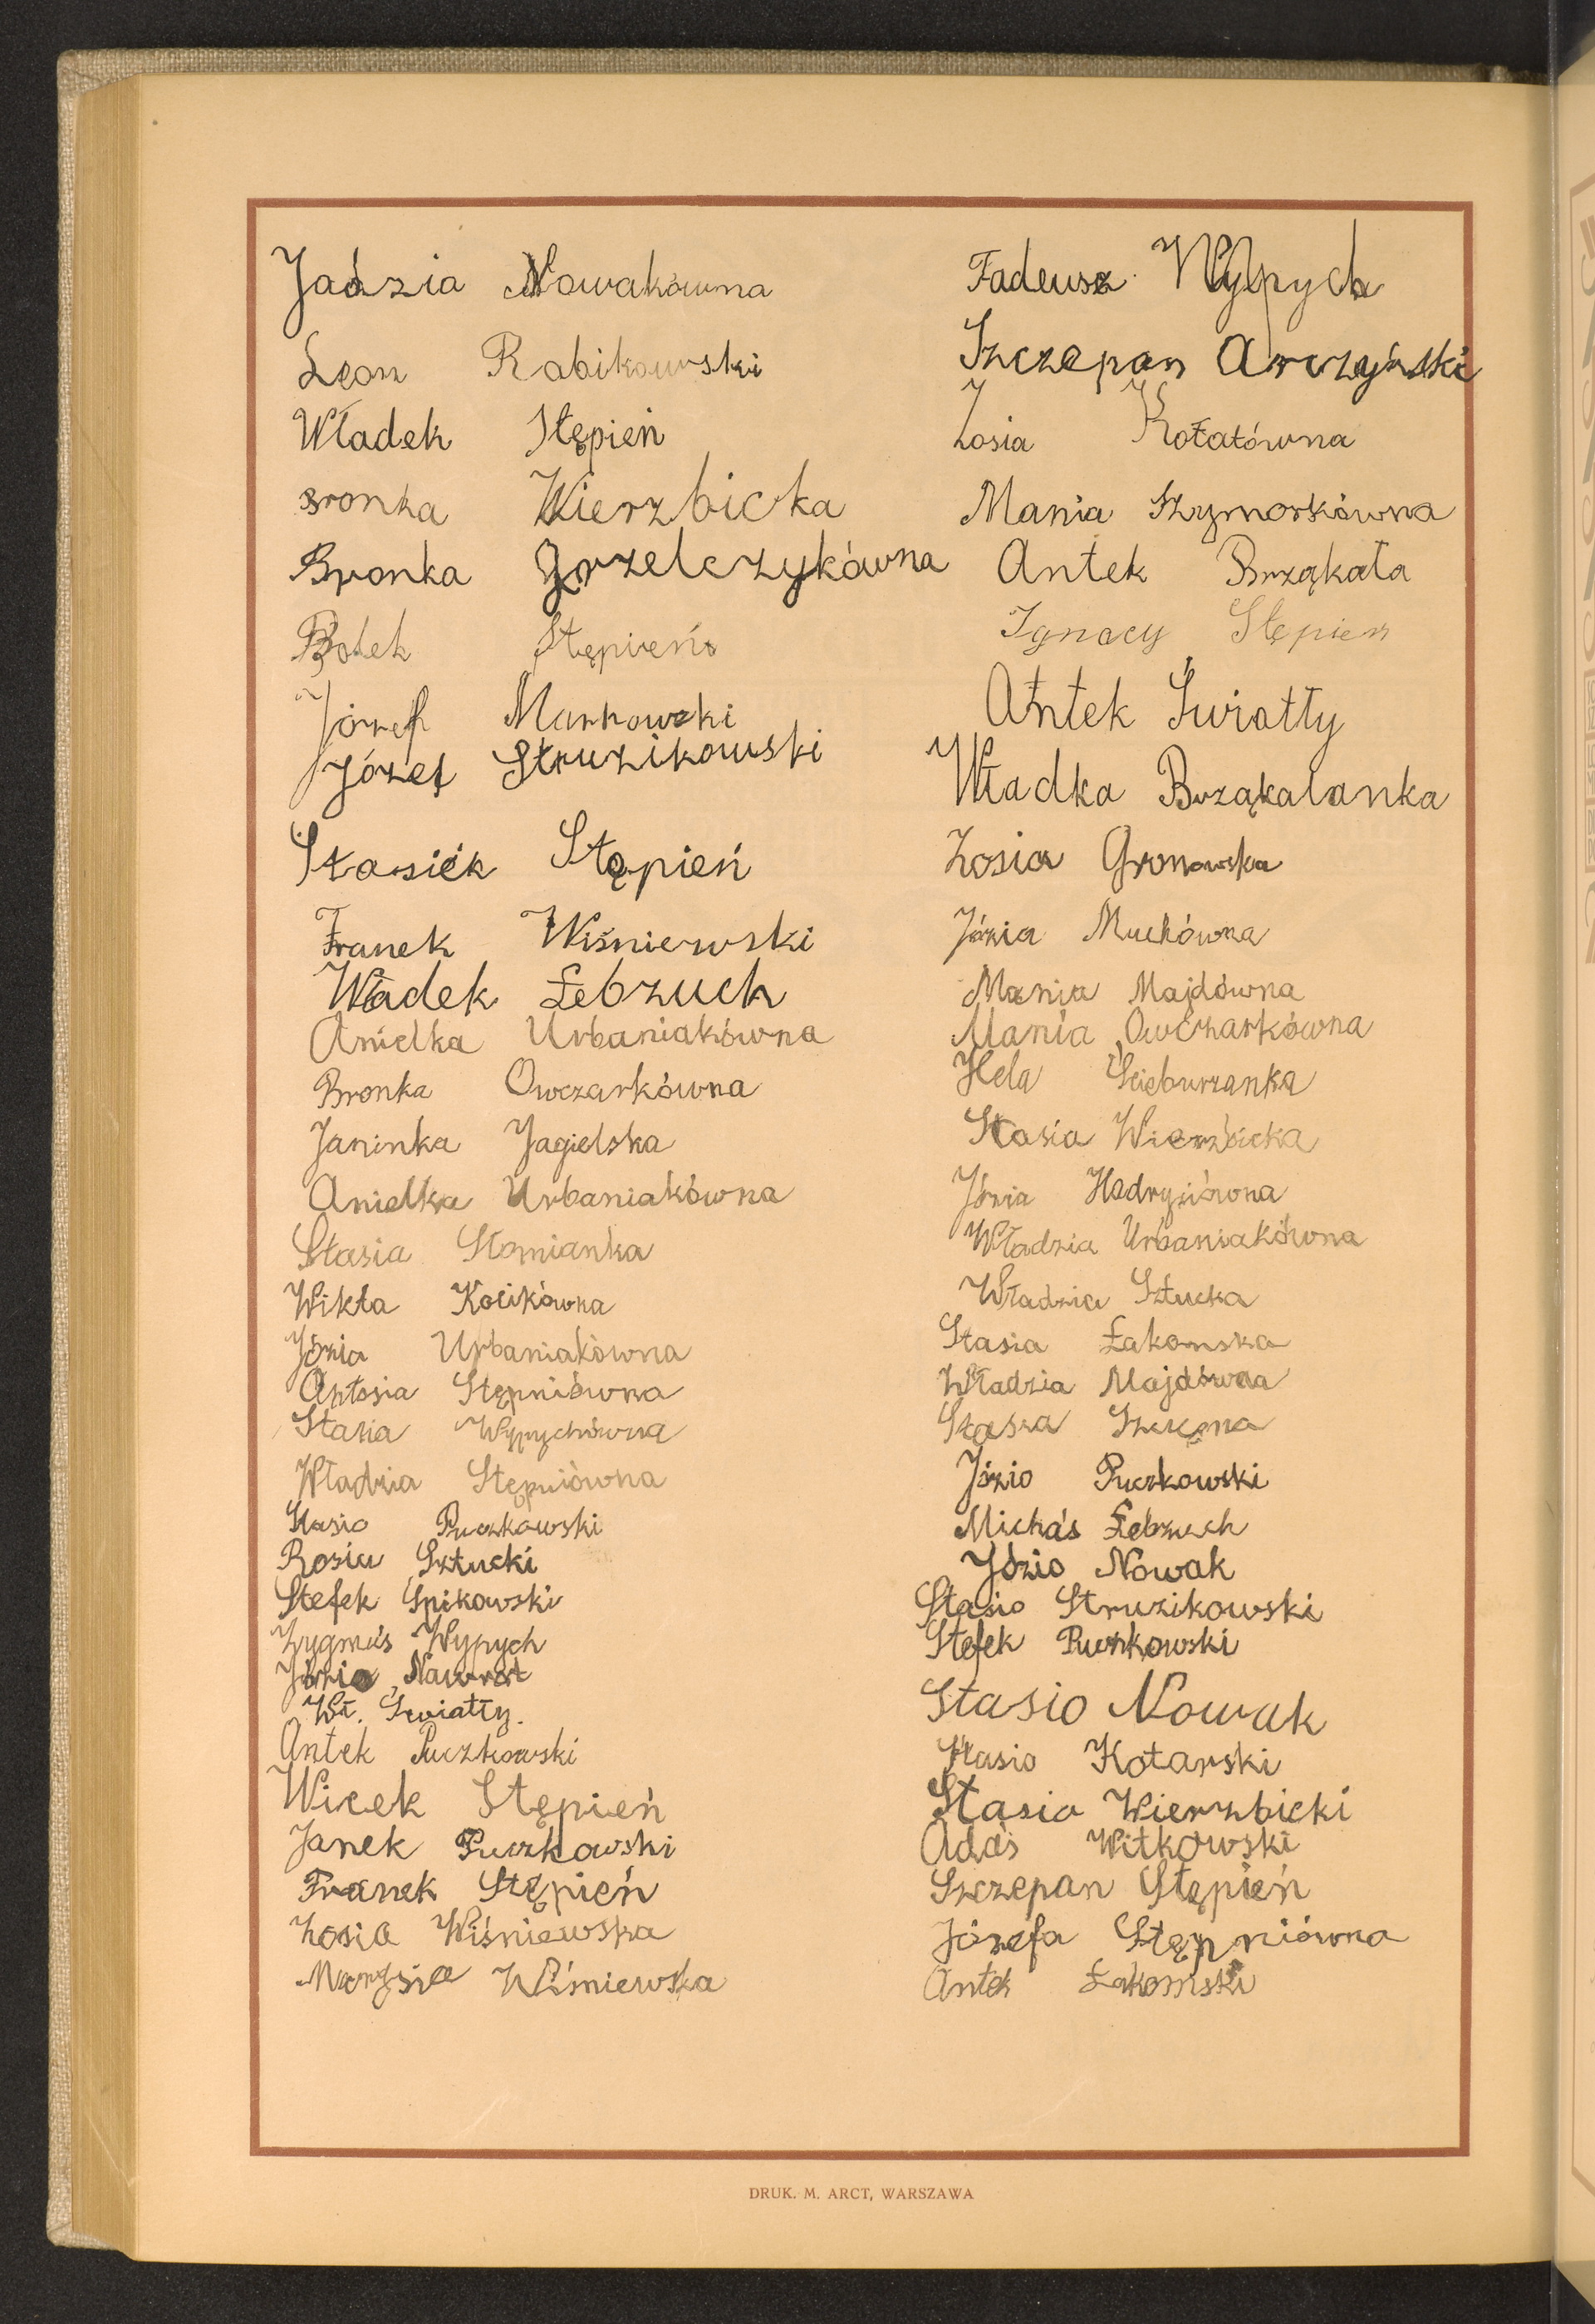 Jadzia Nowakówna
Leon Rabikowski
Władek Stępień
Bronka Wierzbicka
Bronka Grzelczykówna
Bolek Stępień
Józef Markowski
Józef Struzikowski
Stasiek Stępień
Franek Wiśniewski
Władek Łebzuch
Anielka Urbaniakówna
Bronka Owczarkówna
Janinka Jagielska
Anielka Urbaniakówna
Stasia Słomianka
Wikta Kocikówna
Józia Urbaniakówna
Antosia Stępniówna
Stasia Wypychówna
Władzia Stępniówna
Stasio Puczkowski
Rosia Sztucki
Stefek Spikowski
Zygmuś Wypych
Józio Nawrot
Wł. Światły.
Antek Puczkowski
Wicek Stępień
Janek Puczkowski
Franek Stępień
Zosia Wiśniewska
Marysia Wiśniewska
Tadeusz Wypych
Szczepan Arczyński
Zosia Kołatówna
Mania Szymorkówna
Antek Brząkała
Ignacy Stępień
Antek Światły
Władka Brząkalanka
Zosia Gronowska
Józia Muchówna
Mania Majdówna
Mania Owczarkówna
Hela Ścieburzanka
Stasia Wierzbicka
Józia
Władzia Urbaniakówna
Władzia Sztucka
Stasia Łakomska
Władzia Majdówna
Stasia
Józio Puczkowski
Michaś Łebzuch
Józio Nowak
Stasio Struzikowski
Stefek Puczkowski
Stasio Nowak
Stasio Kotarski
Stasio Wierzbicki
Adaś Witkowski
Szczepan Stępień
Józefa Stępniówna
Antek Łakomski
DRUK. M. ARCT, WARSZAWA